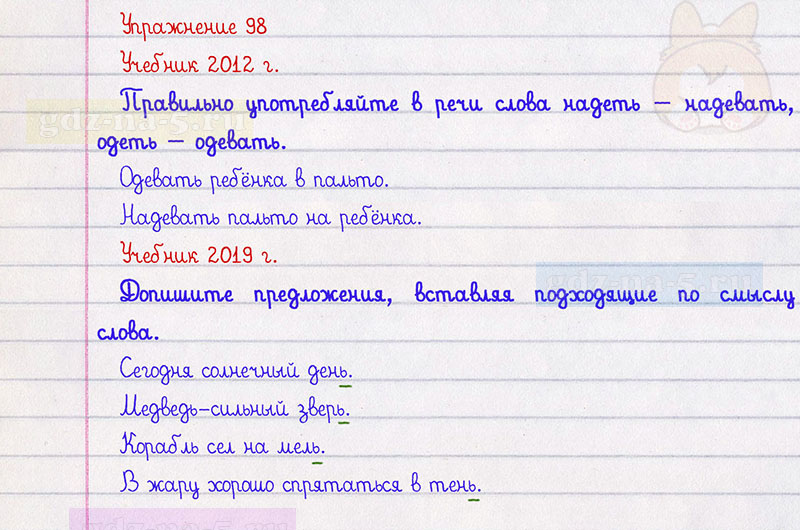 Упражнение 98
Учебник 2012 г.
Правильно употребляйте в речи слова надеть — надевать,
одеть — одевать.
gdz-na-5.ru
Одевать ребёнка в пальто.
Надевать пальто на ребёнка.
Учебник 2019 г.
gdz-na-5.ru
Допишите предложения, вставляя подходящие по смыслу
слова.
Сегодня солнечный день.
Медведь-сильный зверь.
Корабль сел на мель.
В жару хорошо спрятаться в тень.
gdz-na-5.ru